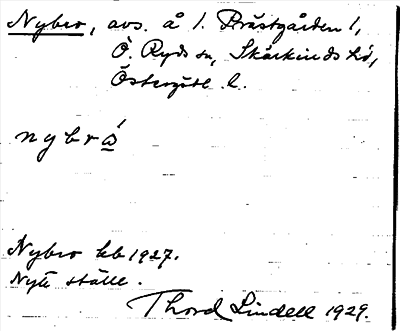 Nybro, avs. å 1. Prästgården 1,
Ö. Ryds sn, Skärkinds hd,
Östergötl. l.
nybró
Nybro kb 1927.
Nytt ställe.
Thord Lindell 1929.